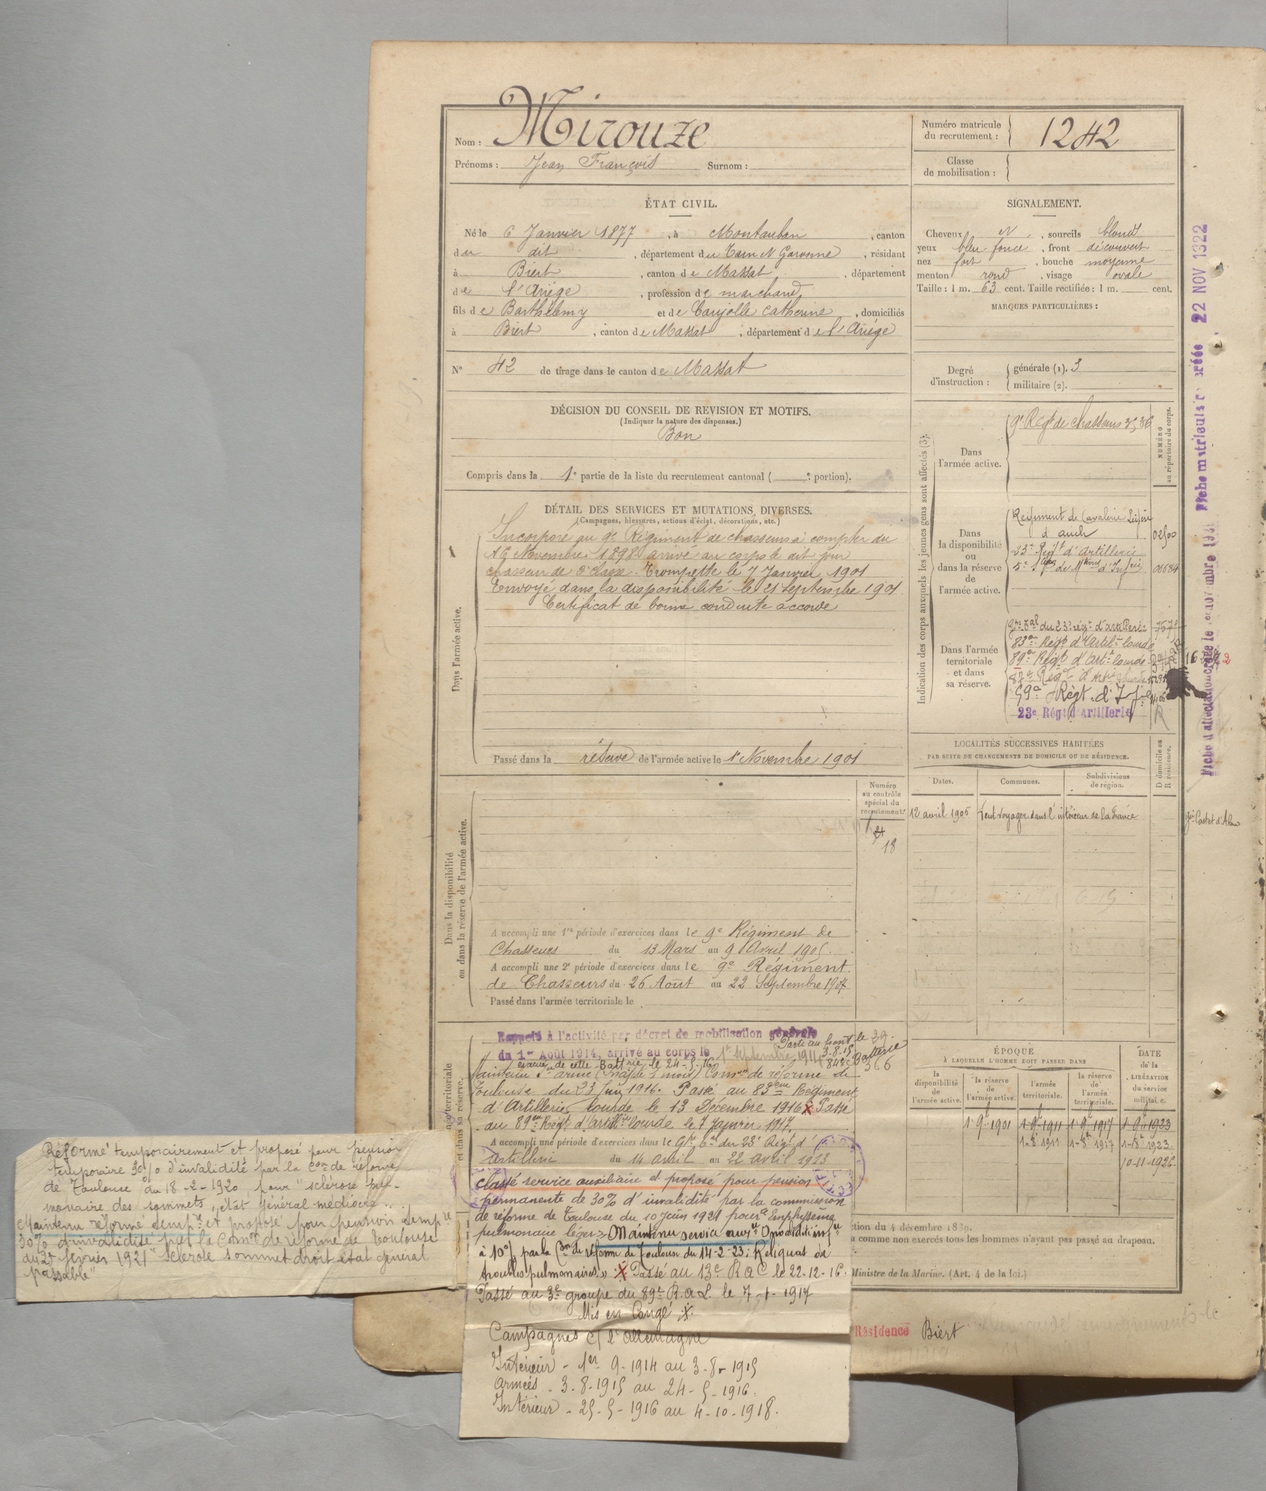 Nom : Mirouze
Prénoms : Jean François Surnom :
Numéro matricule du recrutement : 1242
Classe de mobilisation :
ÉTAT CIVIL.
Né le 6 Janvier 1877, à Montauban, canton
du dit, département du Tarn et Garonne, résidant
à Biert, canton de Massat, département
de l'Ariège, profession de marchand
fils de Barthélemy et de Caujolle Catherine, domiciliés
à Biert, canton de Massat, département de l'Ariège
N° 42 de tirage dans le canton de Massat
SIGNALEMENT.
Cheveux N, sourcils blonds
yeux bleu foncé, front découvert
nez fort, bouche moyenne
menton rond, visage ovale
Taille : 1 m. 63 cent. Taille rectifiée : 1 m. cent.
MARQUES PARTICULIÈRES :
Degré d'instruction : générale (1). 3
militaire (2).
DÉCISION DU CONSEIL DE REVISION ET MOTIFS.
(Indiquer la nature des dispenses.)
Bon
Compris dans la 1e partie de la liste du recrutement cantonal ( e portion).
DÉTAIL DES SERVICES ET MUTATIONS DIVERSES.
(Campagnes, blessures, actions d'éclat, décorations, etc.)
Dans l'armée active.
Incorporé au 9e Régiment de chasseurs à compter du
16 Novembre 1898 arrivé au corps le dit jour
chasseur de 2e classe. Trompette le 7 Janvier 1901
Envoyé dans la disponibilité le 21 septembre 1901
Certificat de bonne conduite accordé
Passé dans la réserve de l'armée active le 1er Novembre 1901
Indication des corps auxquels les jeunes gens sont affectés (3).
NUMÉRO au répertoire du corps.
Dans l'armée active.
9e Régt de chasseurs 2536
Dans la disponibilité ou dans la réserve de l'armée active.
Régiment de Cavalerie Légère
d'auch 02500
33e Régt d'Artillerie
Dans l'armée territoriale et dans sa réserve.
83e Régt d'Artie lourde
89e Régt d'Artie lourde
59e Régt d'Infie
23e Régt d'Artillerie
LOCALITÉS SUCCESSIVES HABITÉES
PAR SUITE DE CHANGEMENTS DE DOMICILE OU DE RÉSIDENCE.
Dates. Communes. Subdivisions de région. D domicile ou R résidence.
12 avril 1905 Peut voyager dans l'intérieur de la France
Dans la disponibilité ou dans la réserve de l'armée active.
Numéro au contrôle spécial du recrutement
18
A accompli une 1re période d'exercices dans le 9e Régiment de
Chasseurs du 13 Mars au 9 Avril 1905.
A accompli une 2e période d'exercices dans le 9e Régiment
de Chasseurs du 26 Août au 22 Septembre 1907
Passé dans l'armée territoriale le
Rappelé à l'activité par décret de mobilisation générale
du 1er Août 1914, arrivé au corps le 1er Septembre 1914
Parti au front le 3-8-15
Toulouse du 23 Juin 1916. Passé au 83ème Régiment
d'Artillerie Lourde le 13 Décembre 1916 x Passé
au 89ème Régt d'Artillie Lourde le 7 Janvier 1917
A accompli une période d'exercices dans le Gie Tal du 23e Régt d'
Artillerie du 14 avril au 22 avril 1913
Classé service auxiliaire et proposé pour pension
permanente de 30% d'invalidité par la commission
de réforme de Toulouse du 10 juin 1921 pour "Emphysème
pulmonaire léger" Maintenu service auxre
à 10% par la Con de réforme de Toulouse du 14-2-23: Reliquat de
troubles pulmonaires" : x Passé au 13e R.A.C. le 22-12-16.
Passé au 3e groupe du 89e R.A.L. le 7-1-1917
Mis en Congé
Campagnes c/ l'Allemagne
Intérieur - 1er 9-1914 au 3-8-1915
Armées - 3-8-1915 au 24-5-1916.
Intérieur - 25-5-1916 au 4-10-1918.
Réformé temporairement et proposé pour pension
temporaire 30% d'invalidité par la Con de réforme
de Toulouse du 18-2-1920 pour "sclérose pul-
monaire des sommets, état général médiocre".
Maintenu réformé tempre et proposé pour pension tempre
30% d'invalidité par la Comon de réforme de Toulouse
du 25 février 1921 "Sclérose sommet droit état général
passable"
ÉPOQUE
À LAQUELLE L'HOMME DOIT PASSER DANS
la disponibilité de l'armée active. la réserve de l'armée active. l'armée territoriale. la réserve de l'armée territoriale.
DATE de la LIBÉRATION du service militaire.
1-9-1901 1-9-1911 1-9-1917 1-9-1923
10-11-1926
tion du 4 décembre 1830.
a comme non exercés tous les hommes n'ayant pas passé au drapeau.
Ministre de la Marine. (Art. 4 de la loi.)
Résidence Biert
22 NOV 1922